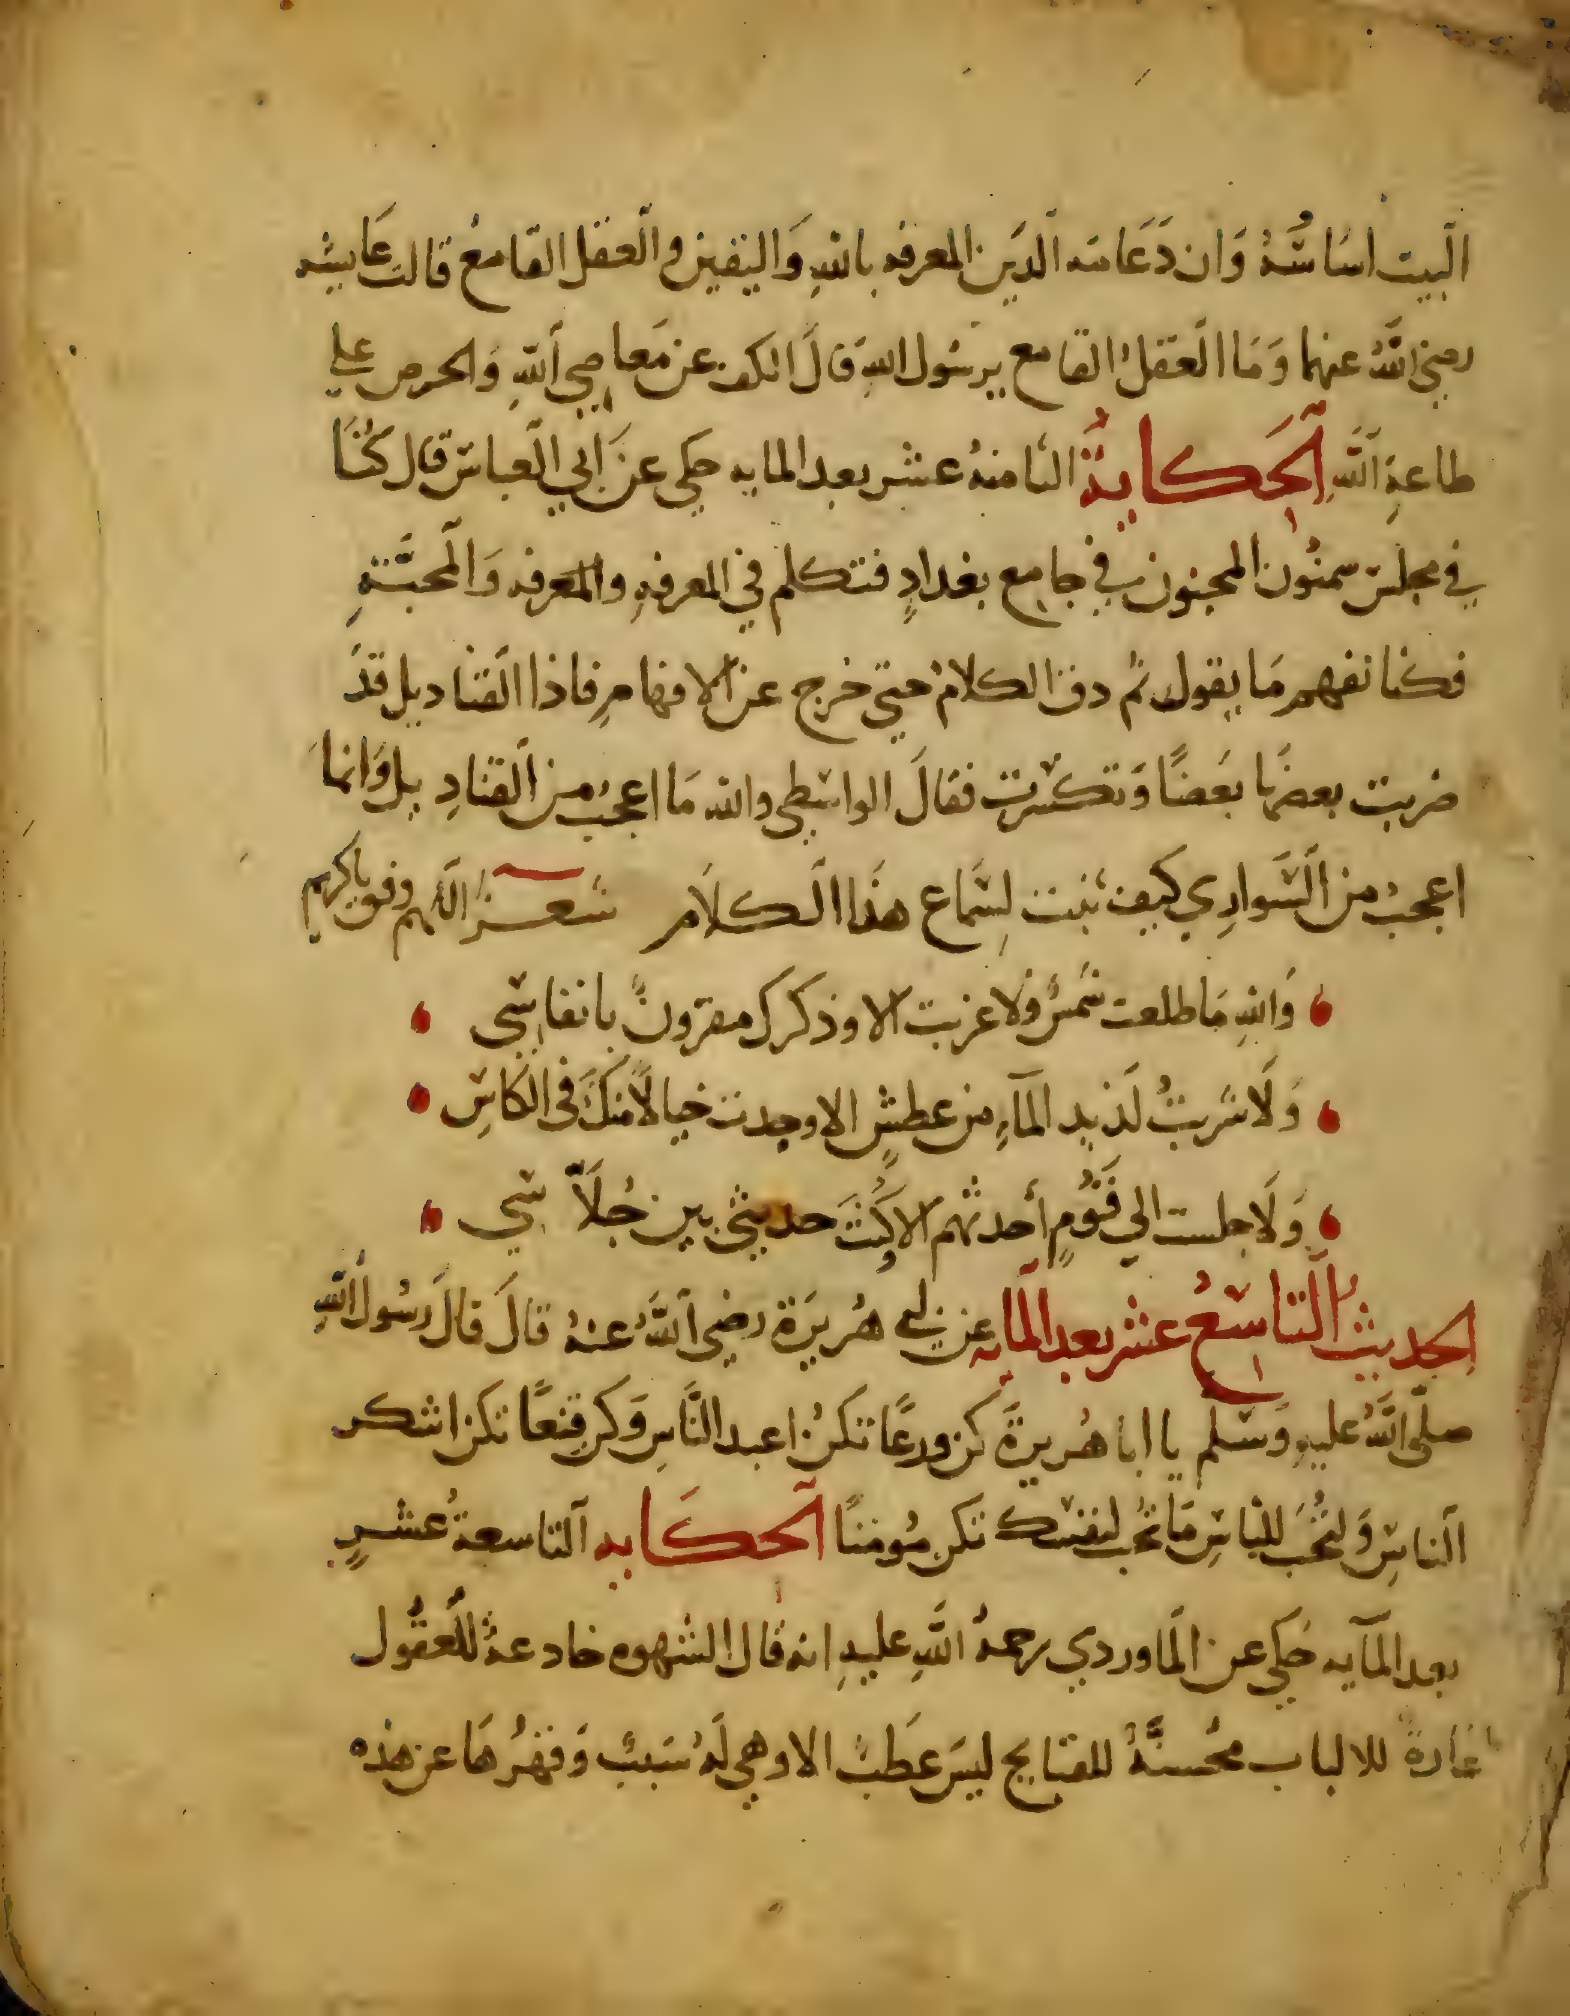 البيت اسَاسُهُ وَان دَعَامه الدَين المعرفه باللهِ وَاليقين والعقل القامعُ قالت عَايشه
رضي اللهُ عنها وَمَا العَقلُ القامع يرسُول اللهِ قالَ الكف عن مَعاصي اللهِ وَالحرص على
طاعةِ اللهِ الحَكايةُ الثامنهُ عشر بعد المايه حكي عن ابي العباس قال كُنَّا
في مجلس سمنُون المجنون في جامع بغدادٍ فتكلم في المعرفهِ والمَعرفه وَالمحبَّةِ
فكنا نفهم مَا يقول ثم دق الكلامُ حتي خرج عن الافهامِ فاذا القناديل قدَ
ضربت بعضهَا بَعَضًا وَتكسّرت فقالَ الواسطي والله مَا اعجبُ من القنادِيل وَانمَا
اعجبُ من السَّوارِي كيف ثبتت لِسَماع هذَا الكلَام شعـر اللهم وفق ياكريم
وَاللهِ مَا طلعت شَمسٌ وَلا غربت الا وذكرك مقرُونٌ بانفاسِي
وَلَا شربتُ لَذيد المآءِ من عطشٍ الا وجدت خيالًا منكَ في الكاسِ
وَلَا جلست الي قَوْمٍ أحدثهم الا وكُنتَ حديثي بين جُلَّاسِي
الحديثُ التاسعُ عشر بعد المايه عن ابي هُريَرَة رضي اللهُ عنهُ قالَ قالَ رسُولُ اللهِ
صلّى اللهُ عليهِ وَسَلم يا ابا هُريرةَ كن ورعًا تكنُ اعبد النَّاسِ وَكن قنعًا تكن اشكر
الناسِ وَلتُحُبَ للنْاسِ مَا تُحب لنفسك تكن مُومنًا الحكَايه التاسعةُ عُشرٍ
بعد المآيه حُكي عن المَاوردي رحمهُ اللهِ عليهِ انه قالَ الشهوه خادعهٌ للعُقُول
غادرة للالباب محُسنَّةٌ للقبايح ليسَ عَطبٌ الا وهي لهُ سَببٌ وَقهرُهَا عن هذه